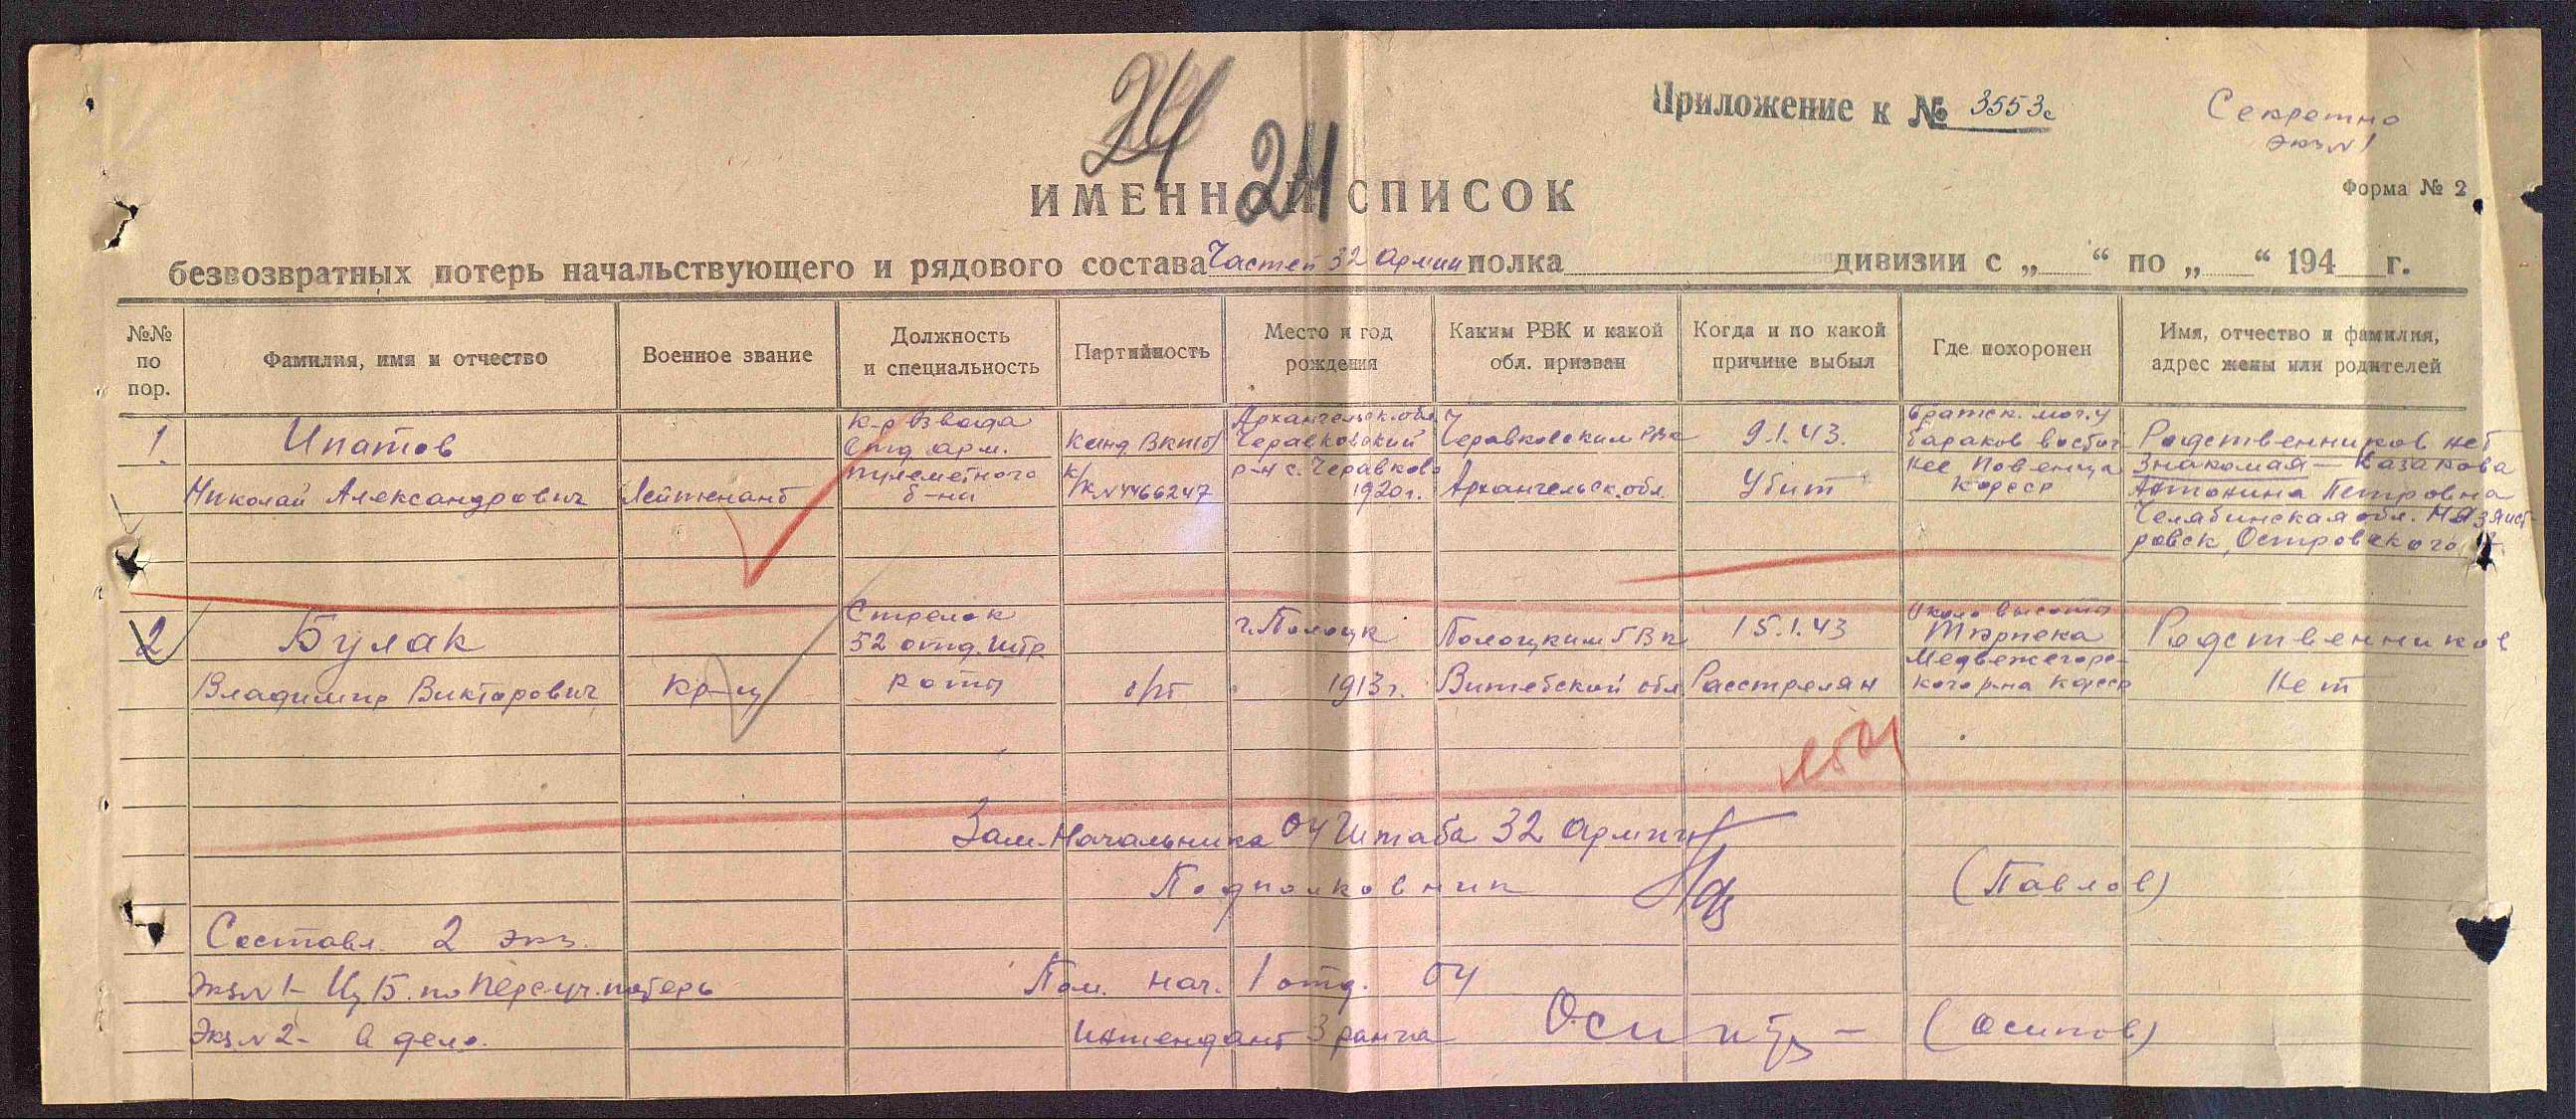 24
24
Приложение к № 3553с
Секретно
экз № 1
ИМЕННОЙ СПИСОК
Форма № 2
безвозвратных потерь начальствующего и рядового состава Частей 32 Армии полка дивизии с „ “ по „ “ 194 г.
№№ по пор.
Фамилия, имя и отчество
Военное звание
Должность и специальность
Партийность
Место и год рождения
Каким РВК и какой обл. призван
Когда и по какой причине выбыл
Где похоронен
Имя, отчество и фамилия, адрес жены или родителей
1.
Ипатов
Николай Александрович
Лейтенант
К-р взвода
Отд арм.
пулеметного
б-на
Канд ВКП(б)
к/к № 4466247
Архангельск. обл
Черавковский
р-н с. Черавково
1920 г.
Черавковским РВК
Архангельск. обл.
9.1.43.
Убит
Братск. мог. у
бараков восточ
нее Повенца
КФССР
Родственников нет
Знакомая — Казакова
Антонина Петровна
Челябинская обл.
Островского
2
Булак
Владимир Викторович
Кр-ц
Стрелок
52 отд. штр
роты
б/п
г. Полоцк
1913 г.
Полоцким ГВК
Витебской обл
15.1.43
Расстрелян
Около высоты
Медвежегорс-
кого р-на КФССР
Родственников
Нет
Зам. Начальника ОУ Штаба 32 Армии
Подполковник
(Павлов)
Составл. 2 экз.
Экз № 1 - Цу Б. по перс. уч. потерь
Пом. нач. 1 отд. ОУ
Экз. № 2 - в дело.
Интендант 3 ранга
(Осипов)